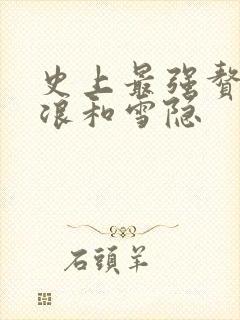 史上最强赘
浪和雪隐
石頭羊